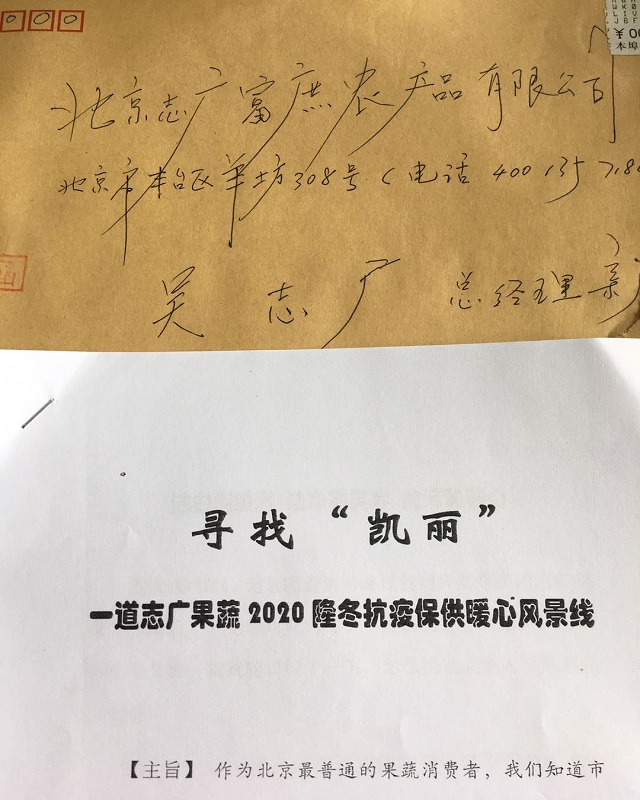 北京志广富庶农产品有限公司
北京市丰台区羊坊308号(电话 400 135
吴志广 总经理 亲
寻找“凯丽”
一道志广果蔬2020隆冬抗疫保供暖心风景线
【主旨】 作为北京最普通的果蔬消费者，我们知道市